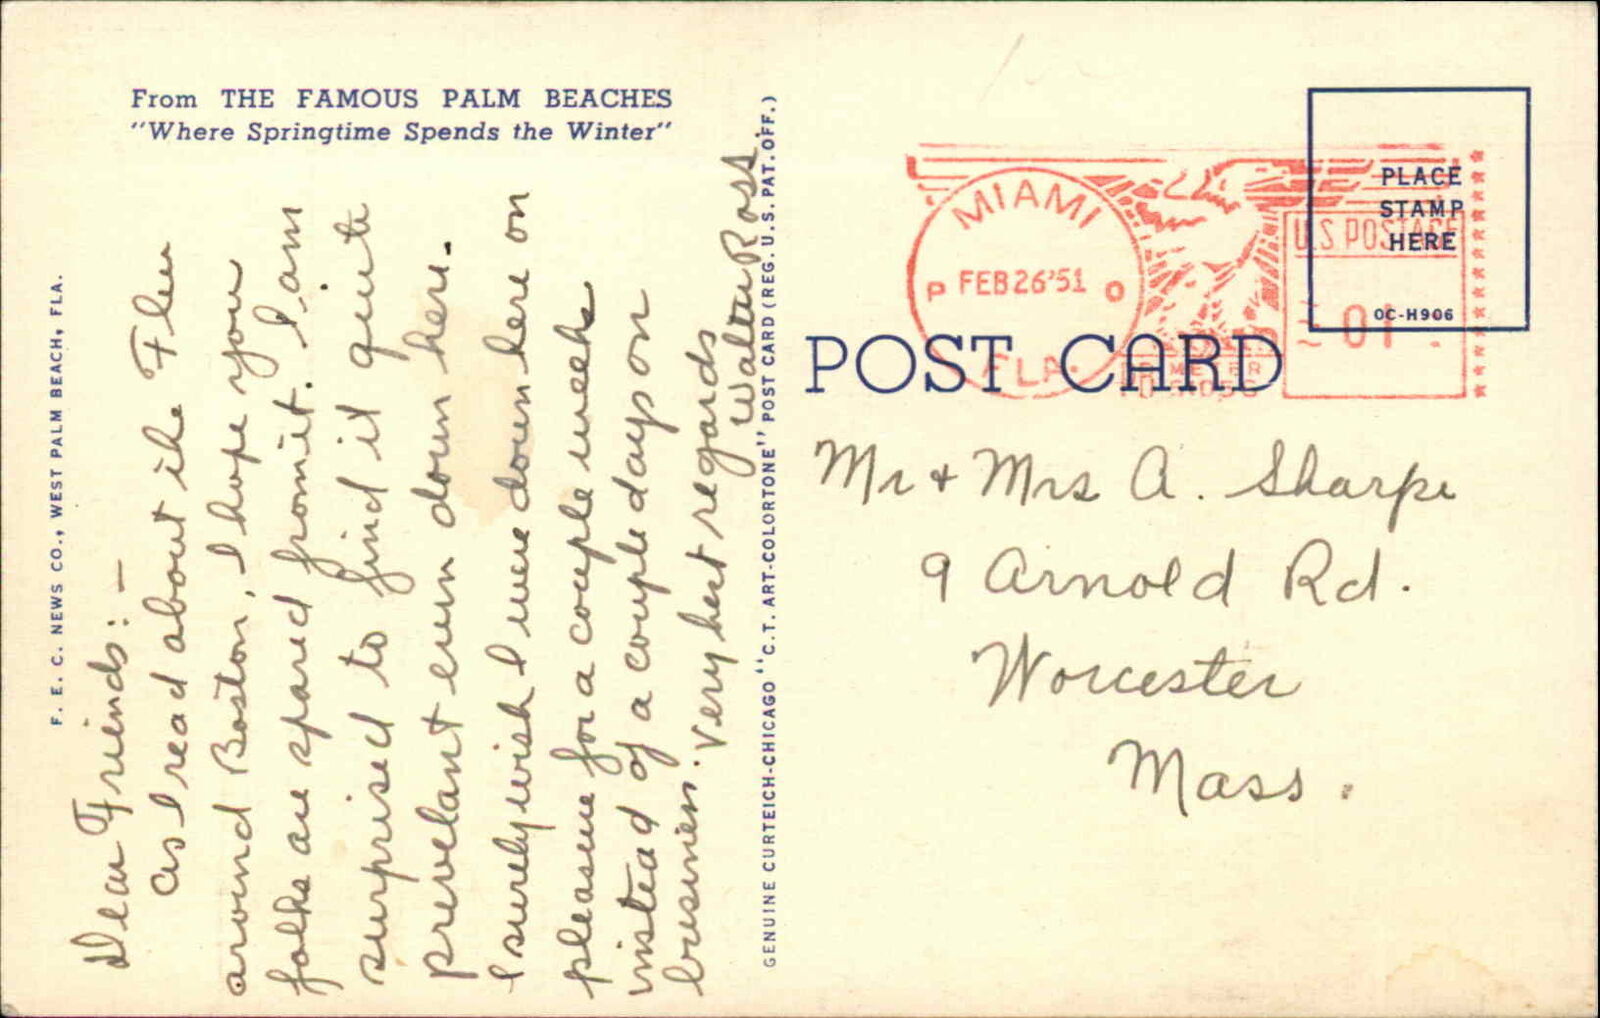 From THE FAMOUS PALM BEACHES
"Where Springtime Spends the Winter"
F. E. C. NEWS CO., WEST PALM BEACH, FLA.
Dear Friends: —
As I read about the Flu
around Boston, I hope you
folks are spared from it. I am
surprised to find it quite
prevelant even down here.
I surely wish I were down here on
pleasure for a couple weeks
instead of a couple days on
business. Very best regards
Walter Ross.
GENUINE CURTEICH-CHICAGO "C.T. ART-COLORTONE" POST CARD (REG. U.S. PAT. OFF.)
PLACE
STAMP
HERE
OC-H906
MIAMI
P FEB 26 '51 O
FLA.
U.S. POSTAGE
01
METER
POST CARD
Mr + Mrs A. Sharpe
9 Arnold Rd.
Worcester
Mass.